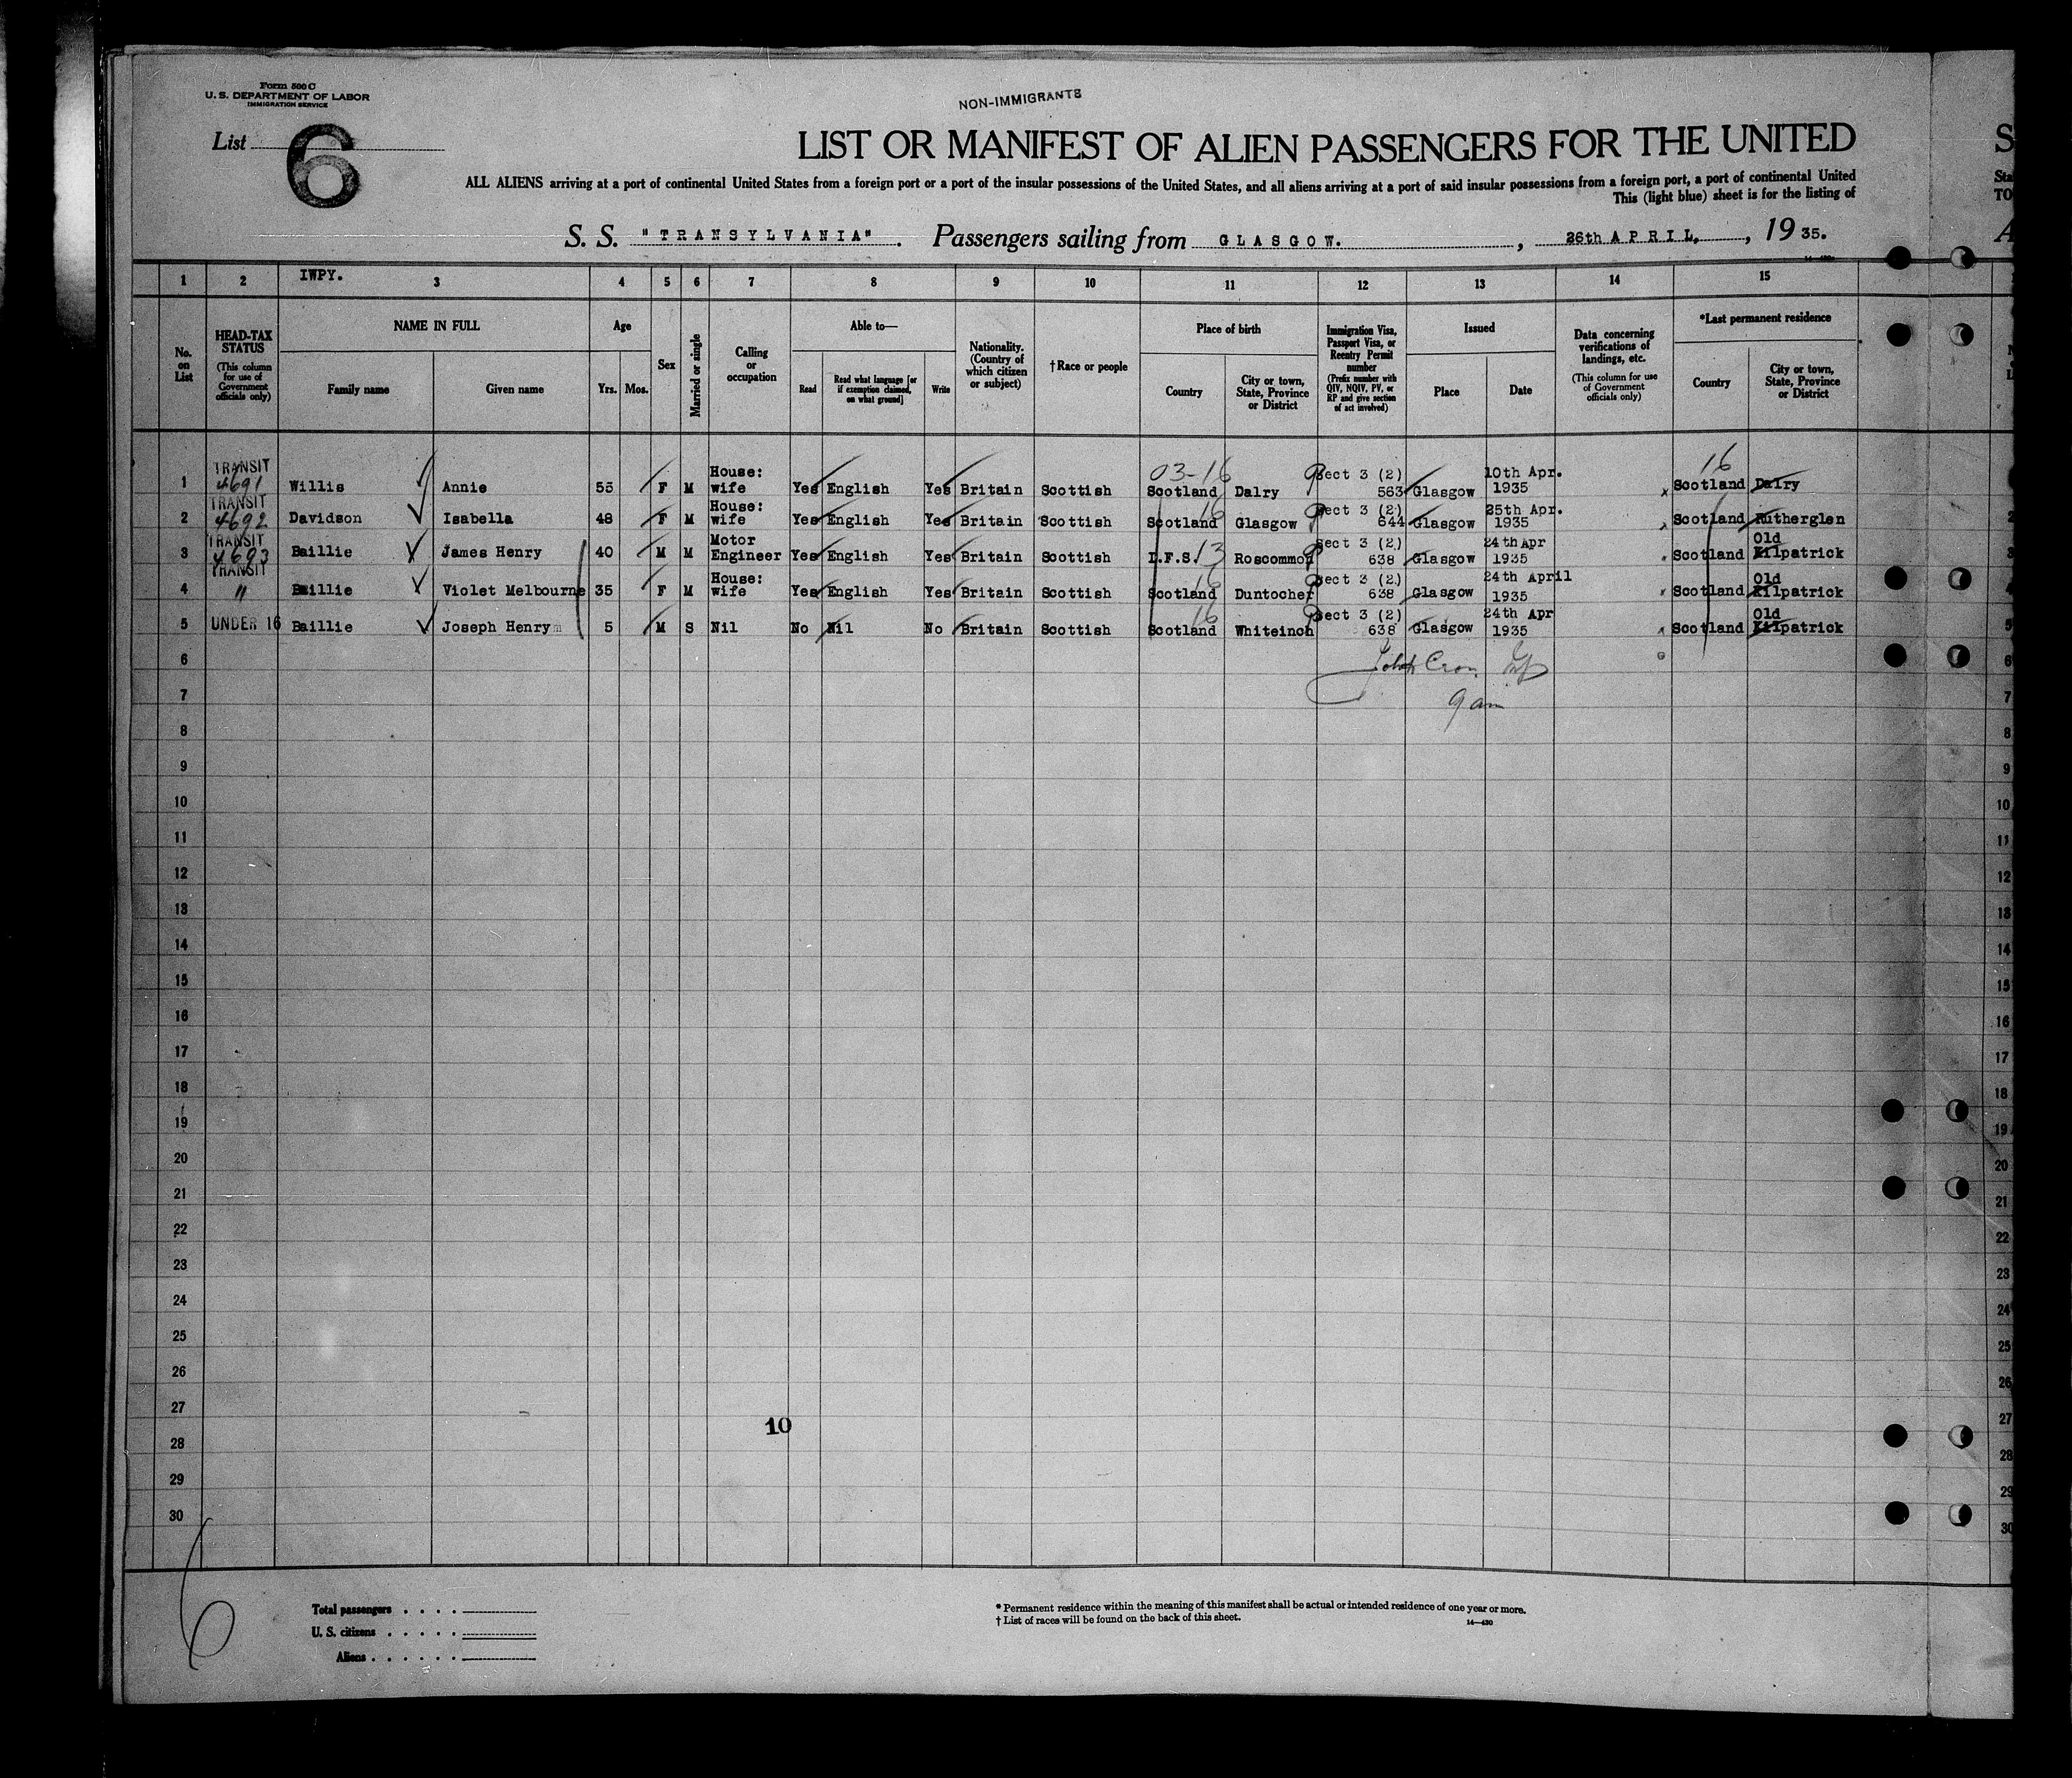 Form 500 C
U. S. DEPARTMENT OF LABOR
IMMIGRATION SERVICE
NON-IMMIGRANTS
List 6
LIST OR MANIFEST OF ALIEN PASSENGERS FOR THE UNITED
S
ALL ALIENS arriving at a port of continental United States from a foreign port or a port of the insular possessions of the United States, and all aliens arriving at a port of said insular possessions from a foreign port, a port of continental United
Sta
This (light blue) sheet is for the listing of
TO
S. S. "TRANSYLVANIA". Passengers sailing from GLASGOW. , 26th APRIL, , 19 35.
A
1 2 IWPY. 3 4 5 6 7 8 9 10 11 12 13 14 15
No. on List
HEAD-TAX STATUS (This column for use of Government officials only)
NAME IN FULL Family name Given name
Age Yrs. Mos.
Sex
Married or single
Calling or occupation
Able to— Read Read what language [or if exemption claimed, on what ground] Write
Nationality. (Country of which citizen or subject)
† Race or people
Place of birth Country City or town, State, Province or District
Immigration Visa, Passport Visa, or Reentry Permit number (Prefix number with QIV, NQIV, PV, or RP and give section of act involved)
Issued Place Date
Data concerning verifications of landings, etc. (This column for use of Government officials only)
*Last permanent residence Country City or town, State, Province or District
1 TRANSIT 4691 Willis Annie 55 F M House: wife Yes English Yes Britain Scottish 03-16 Scotland Dalry Sect 3 (2) 563 Glasgow 10th Apr. 1935 x 16 Scotland Dalry
2 TRANSIT 4692 Davidson Isabella 48 F M House: wife Yes English Yes Britain Scottish 16 Scotland Glasgow Sect 3 (2) 644 Glasgow 25th Apr. 1935 Scotland Rutherglen
3 TRANSIT 4693 Baillie James Henry 40 M M Motor Engineer Yes English Yes Britain Scottish I.F.S. 13 Roscommon Sect 3 (2) 638 Glasgow 24th Apr 1935 Scotland Old Kilpatrick
4 TRANSIT " Baillie Violet Melbourne 35 F M House: wife Yes English Yes Britain Scottish 16 Scotland Duntocher Sect 3 (2) 638 Glasgow 24th April 1935 Scotland Old Kilpatrick
5 UNDER 16 Baillie Joseph Henry 5 M S Nil No Nil No Britain Scottish 16 Scotland Whiteinch Sect 3 (2) 638 Glasgow 24th Apr 1935 Scotland Old Kilpatrick
6 6
7 9 am 7
8 8
9 9
10 10
11 11
12 12
13 13
14 14
15 15
16 16
17 17
18 18
19 19
20 20
21 21
22 22
23 23
24 24
25 25
26 26
27 10 27
28 28
29 29
30 30
6
Total passengers
U. S. citizens
Aliens
* Permanent residence within the meaning of this manifest shall be actual or intended residence of one year or more.
† List of races will be found on the back of this sheet.
14—430